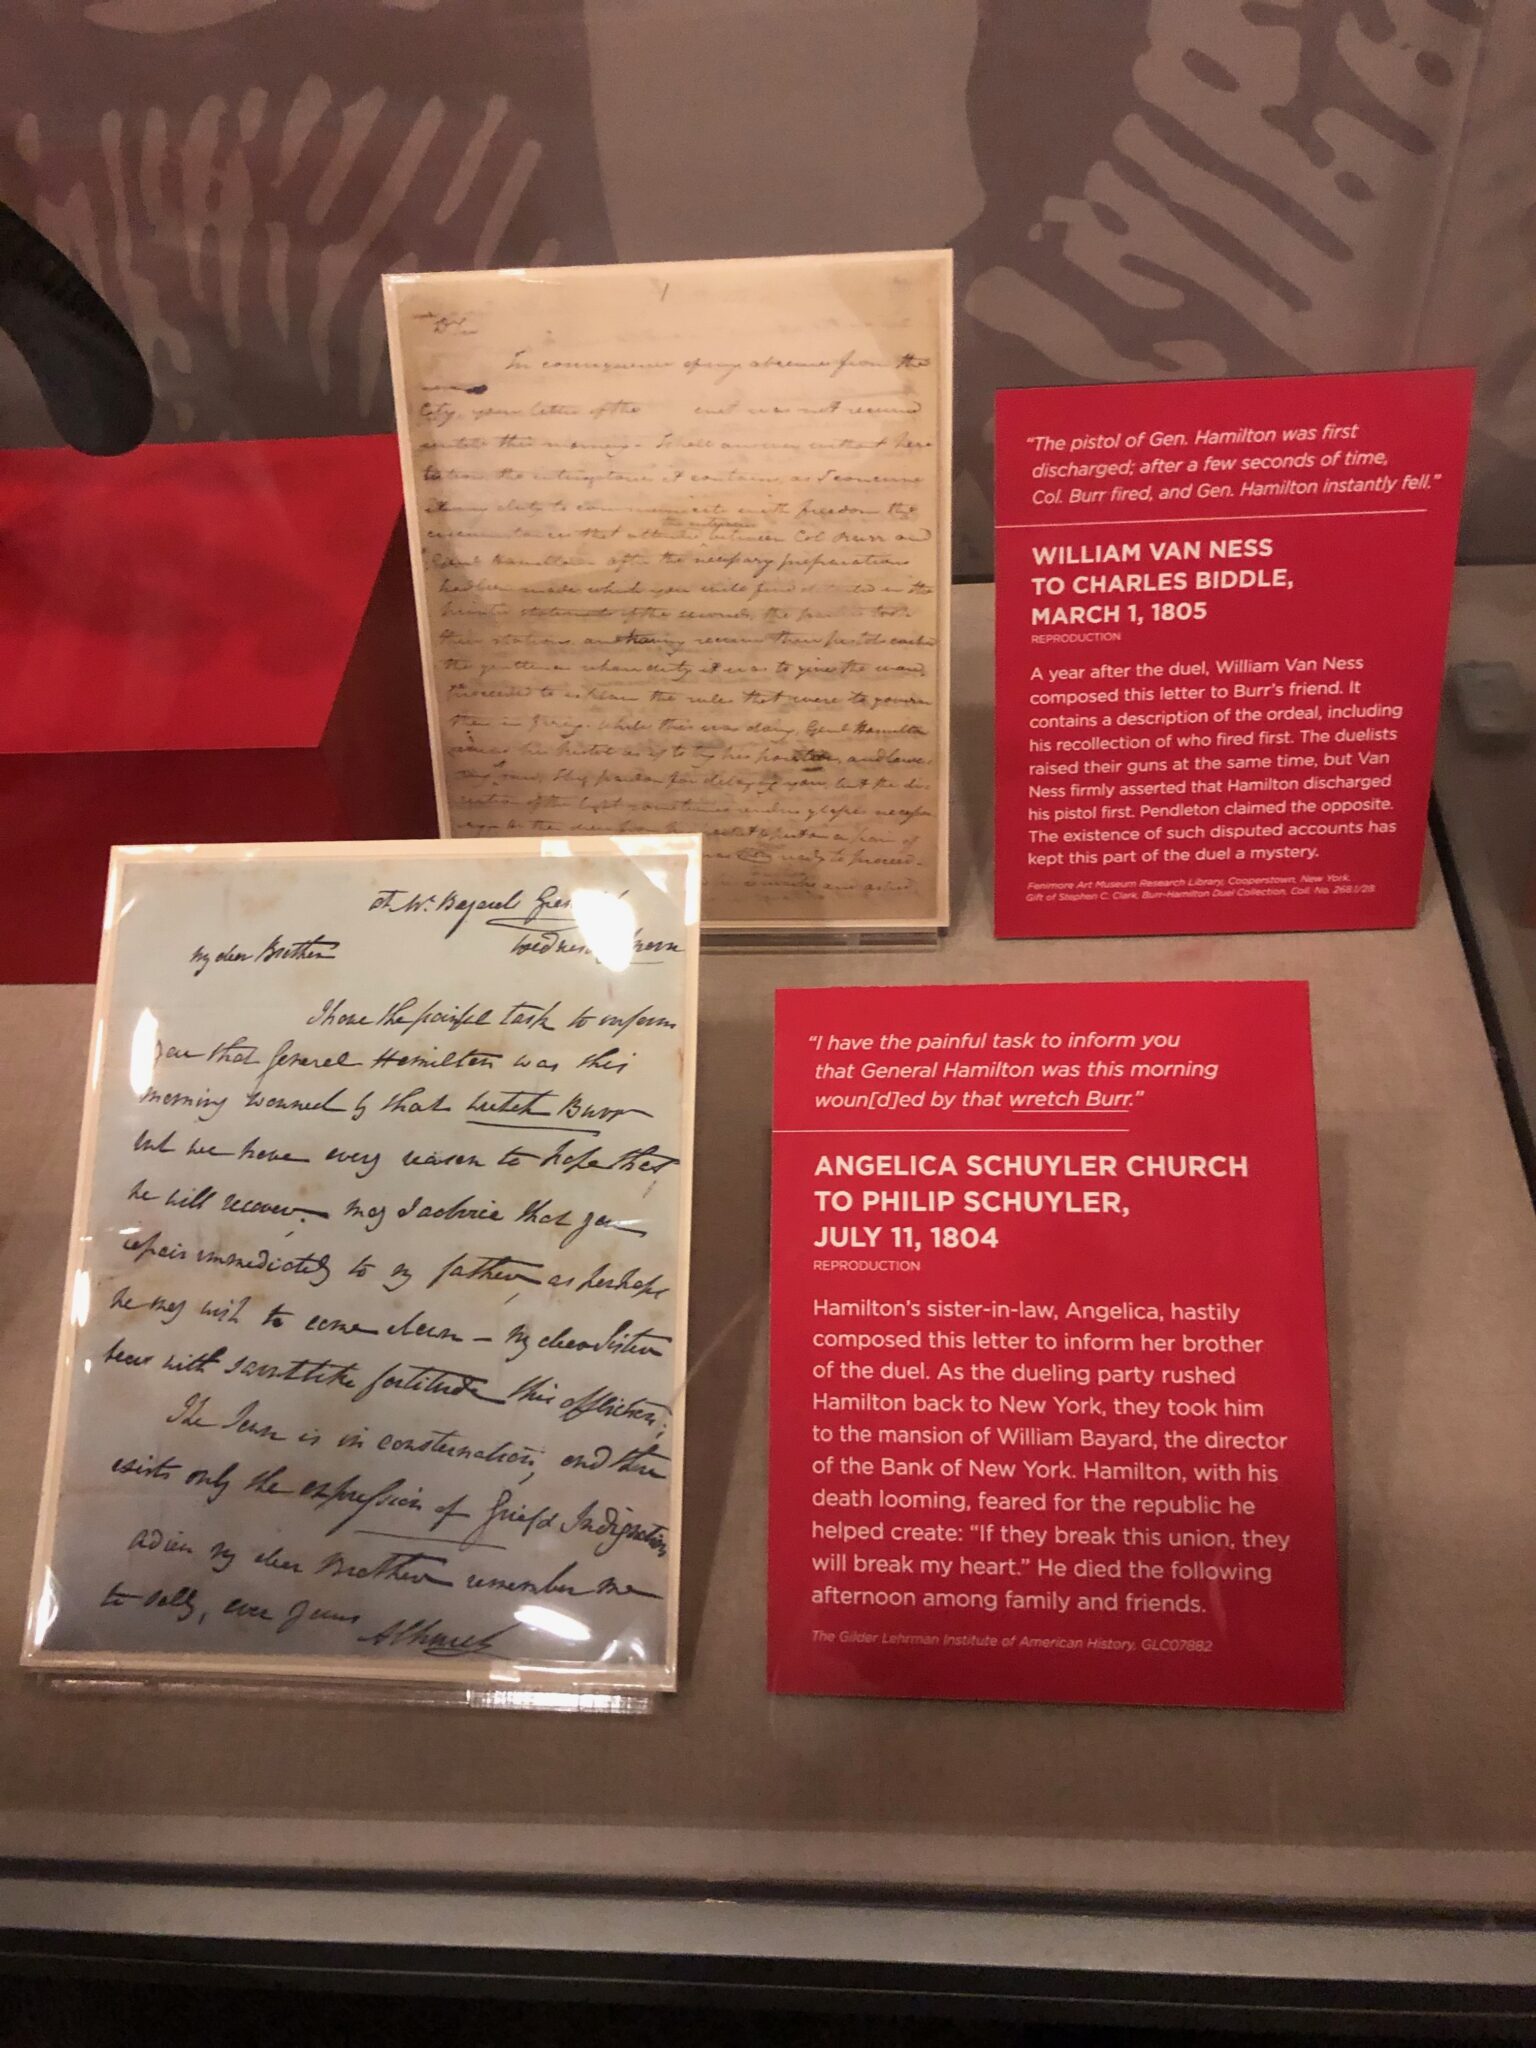 1
Sir
In consequence of my absence from the
City, your letter of the inst was not received
until this morning. I shall answer without hesi
tation the interrogatories it contains, as I conceive
it my duty to communicate with freedom the
circumstances that attended the interview between Col Burr and
Genl Hamilton after the necessary preparations
had been made which you will find detailed in the
statement of the seconds, the parties took
their stations and having received their pistols
the gentleman whose duty it was to give the word
proceeded to explain the rules that were to govern
them in firing. While this was doing, Genl Hamilton
raised his pistol as if to try his position, and lower
ing it said, I beg pardon for delaying you, but the di-
rection of the light renders glasses necessary
ready to proceed.
and asked
"The pistol of Gen. Hamilton was first
discharged; after a few seconds of time,
Col. Burr fired, and Gen. Hamilton instantly fell."
WILLIAM VAN NESS
TO CHARLES BIDDLE,
MARCH 1, 1805
REPRODUCTION
A year after the duel, William Van Ness
composed this letter to Burr's friend. It
contains a description of the ordeal, including
his recollection of who fired first. The duelists
raised their guns at the same time, but Van
Ness firmly asserted that Hamilton discharged
his pistol first. Pendleton claimed the opposite.
The existence of such disputed accounts has
kept this part of the duel a mystery.
Fenimore Art Museum Research Library, Cooperstown, New York.
Gift of Stephen C. Clark, Burr-Hamilton Duel Collection, Coll. No. 268.1/28
at Mr. Bayard
Wednesday Morn
My dear Brother
I have the painful task to inform
you that General Hamilton was this
morning wouned by that wretch Burr
but we have every reason to hope that
he will recover. May I advice that you
repair immediately to my father, as perhaps
he may wish to come down – My dear Sister
bears with saintlike fortitude this affliction;
The Town is in consternation, and there
exists only the expression of Grief & Indignation
adieu my dear Brother remember me
to Sally, ever yours
A Church
"I have the painful task to inform you
that General Hamilton was this morning
woun[d]ed by that wretch Burr."
ANGELICA SCHUYLER CHURCH
TO PHILIP SCHUYLER,
JULY 11, 1804
REPRODUCTION
Hamilton's sister-in-law, Angelica, hastily
composed this letter to inform her brother
of the duel. As the dueling party rushed
Hamilton back to New York, they took him
to the mansion of William Bayard, the director
of the Bank of New York. Hamilton, with his
death looming, feared for the republic he
helped create: "If they break this union, they
will break my heart." He died the following
afternoon among family and friends.
The Gilder Lehrman Institute of American History, GLC07882